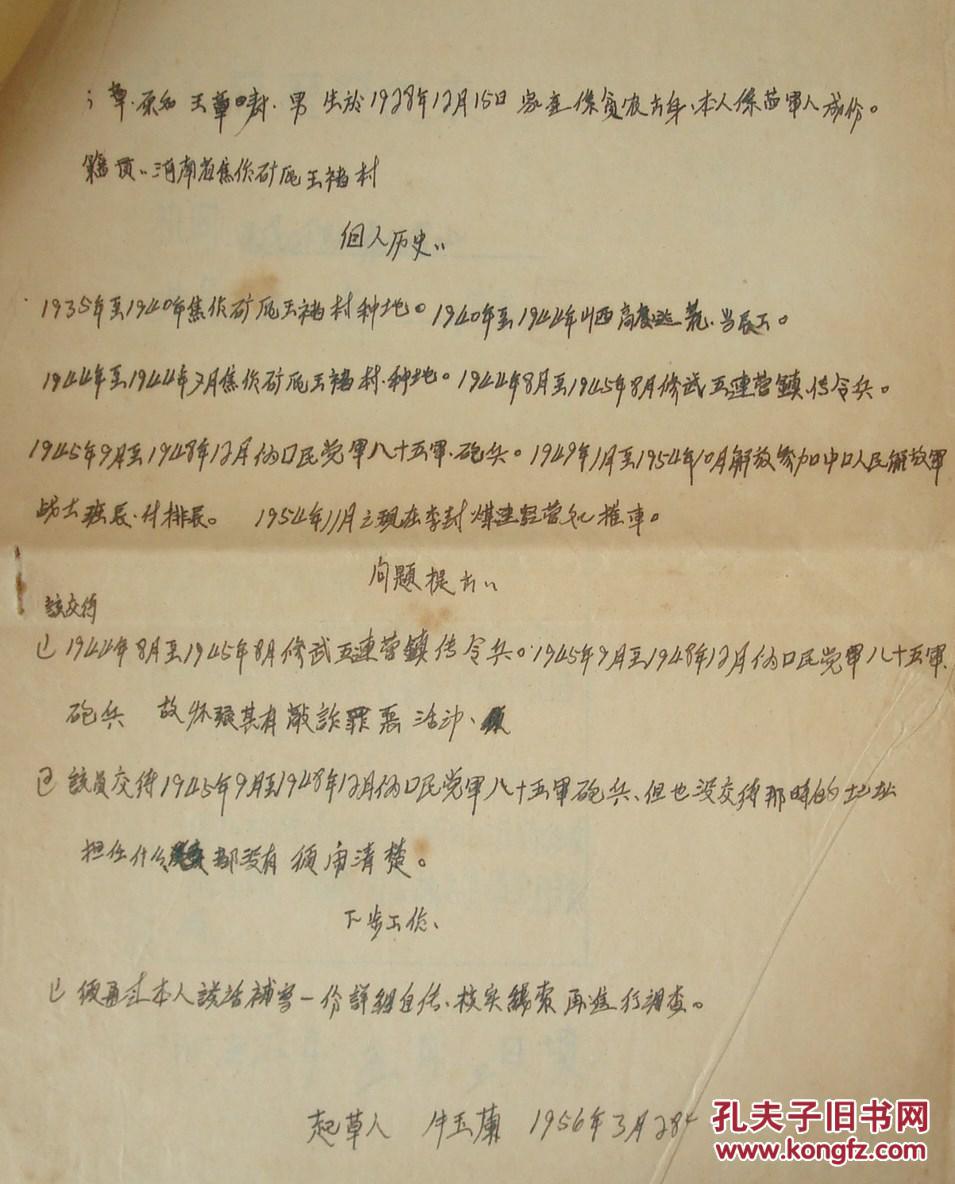 华. 原名 王華封. 男 生於1928年12月15日 家庭係貧农出身、本人係旧軍人成份。
籍貫：河南省焦作矿区王褚村
個人历史：
1935年至1940年焦作矿区王褚村种地。1940年至1944年山西高 逃荒. 当長工。
1944年至1944年7月焦作矿区王褚村.种地。1944年8月至1945年8月修武五連营鎮.传令兵。
1945年9月至1948年12月伪囗民党軍八十五軍.砲兵。1949年1月至1954年10月解放参加中囗人民解放軍
战士班長.付排長。 1954年11月至現在李封煤建經营処推車。
問題提出：
該交待
① 1944年8月至1945年8月修武五連营鎮传令兵。1945年9月至1948年12月伪囗民党軍八十五軍.
砲兵 故怀疑其有敲詐罪惡活动、
② 該員交待1945年9月至1948年12月伪囗民党軍八十五軍砲兵、但也没交待那時的地址
担任什么 都没有 須审清楚。
下步工作、
① 須通过本人談話補写一份詳細自传、核实綫索再進行調查。
起草人 牛玉蘭 1956年3月28日
孔夫子旧书网
www.kongfz.com